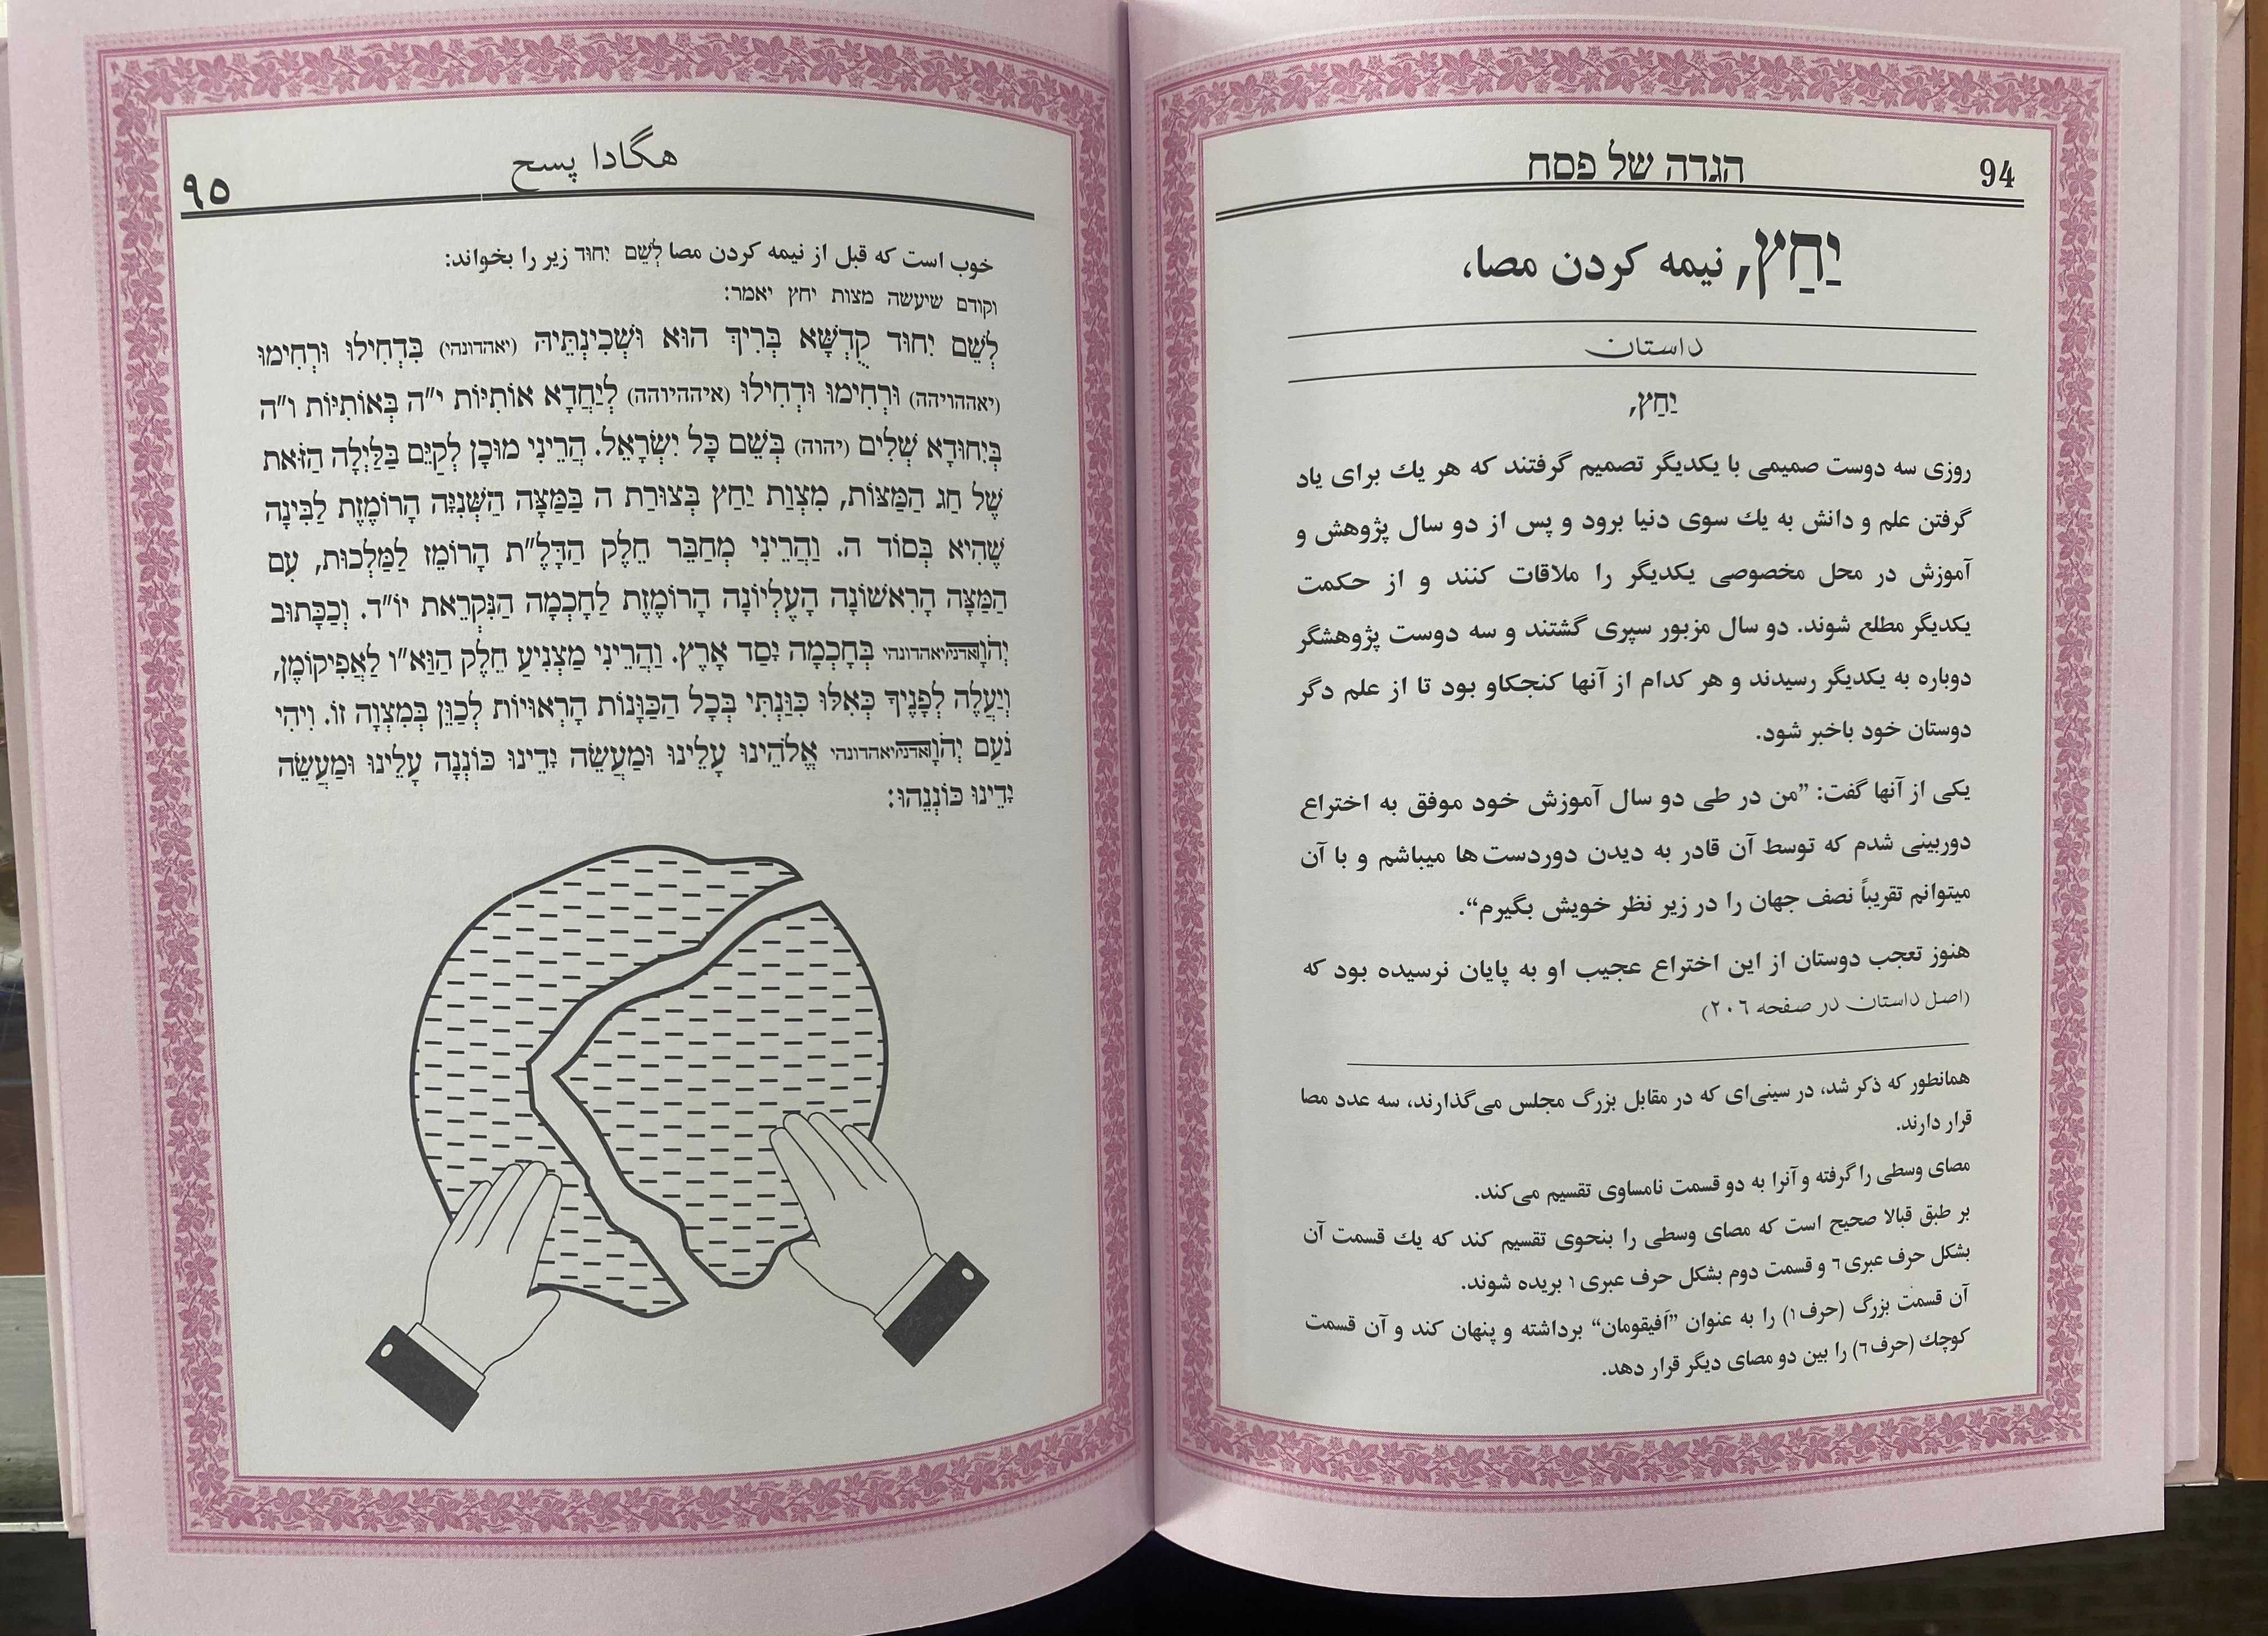 94
הגדה של פסח
יַחַץ, نیمه کردن مصا،
داستان
יַחַץ,
روزی سه دوست صمیمی با یکدیگر تصمیم گرفتند که هر یك برای یاد
گرفتن علم و دانش به یك سوی دنیا برود و پس از دو سال پژوهش و
آموزش در محل مخصوصی یکدیگر را ملاقات کنند و از حکمت
یکدیگر مطلع شوند. دو سال مزبور سپری گشتند و سه دوست پژوهشگر
دوباره به یکدیگر رسیدند و هر کدام از آنها کنجکاو بود تا از علم دگر
دوستان خود باخبر شود.
یکی از آنها گفت: ”من در طی دو سال آموزش خود موفق به اختراع
دوربینی شدم که توسط آن قادر به دیدن دوردست ها میباشم و با آن
میتوانم تقریباً نصف جهان را در زیر نظر خویش بگیرم“.
هنوز تعجب دوستان از این اختراع عجیب او به پایان نرسیده بود که
(اصل داستان در صفحه ۲۰٦)
همانطور که ذکر شد، در سینی‌ای که در مقابل بزرگ مجلس می‌گذارند، سه عدد مصا
قرار دارند.
مصای وسطی را گرفته و آنرا به دو قسمت نامساوی تقسیم می‌کند.
بر طبق قبالا صحیح است که مصای وسطی را بنحوی تقسیم کند که یك قسمت آن
بشکل حرف عبری ד و قسمت دوم بشکل حرف عبری ו بریده شوند.
آن قسمت بزرگ (حرف ו) را به عنوان ”اَفیقومان“ برداشته و پنهان کند و آن قسمت
کوچك (حرف ד) را بین دو مصای دیگر قرار دهد.
هگادا پسح
۹٥
خوب است که قبل از نیمه کردن مصا לְשֵׁם יִחוּד زیر را بخواند:
וקודם שיעשה מצות יחץ יאמר:
לְשֵׁם יִחוּד קֻדְשָׁא בְּרִיךְ הוּא וּשְׁכִינְתֵּיהּ (יאהדונהי) בִּדְחִילוּ וּרְחִימוּ
(יאההויהה) וּרְחִימוּ וּדְחִילוּ (איההיוהה) לְיַחֲדָא אוֹתִיּוֹת י״ה בְּאוֹתִיּוֹת ו״ה
בְּיִחוּדָא שְׁלִים (יהוה) בְּשֵׁם כָּל יִשְׂרָאֵל. הֲרֵינִי מוּכָן לְקַיֵּם בַּלַּיְלָה הַזֹּאת
שֶׁל חַג הַמַּצּוֹת, מִצְוַת יַחַץ בְּצוּרַת ה בַּמַּצָּה הַשְּׁנִיָּה הָרוֹמֶזֶת לַבִּינָה
שֶׁהִיא בְּסוֹד ה. וַהֲרֵינִי מְחַבֵּר חֵלֶק הַדָּלֶ״ת הָרוֹמֵז לַמַּלְכוּת, עִם
הַמַּצָּה הָרִאשׁוֹנָה הָעֶלְיוֹנָה הָרוֹמֶזֶת לַחָכְמָה הַנִּקְרֵאת יוֹ״ד. וְכַכָּתוּב
יְהֹוָהאדנייאהדונהי בְּחָכְמָה יָסַד אָרֶץ. וַהֲרֵינִי מַצְנִיעַ חֵלֶק הַוָּא״ו לַאֲפִיקוֹמֶן,
וְיַעֲלֶה לְפָנֶיךָ כְּאִלּוּ כִּוַּנְתִּי בְּכָל הַכַּוָּנוֹת הָרְאוּיוֹת לְכַוֵּן בְּמִצְוָה זוֹ. וִיהִי
נֹעַם יְהֹוָהאדנייאהדונהי אֱלֹהֵינוּ עָלֵינוּ וּמַעֲשֵׂה יָדֵינוּ כּוֹנְנָה עָלֵינוּ וּמַעֲשֵׂה
יָדֵינוּ כּוֹנְנֵהוּ: